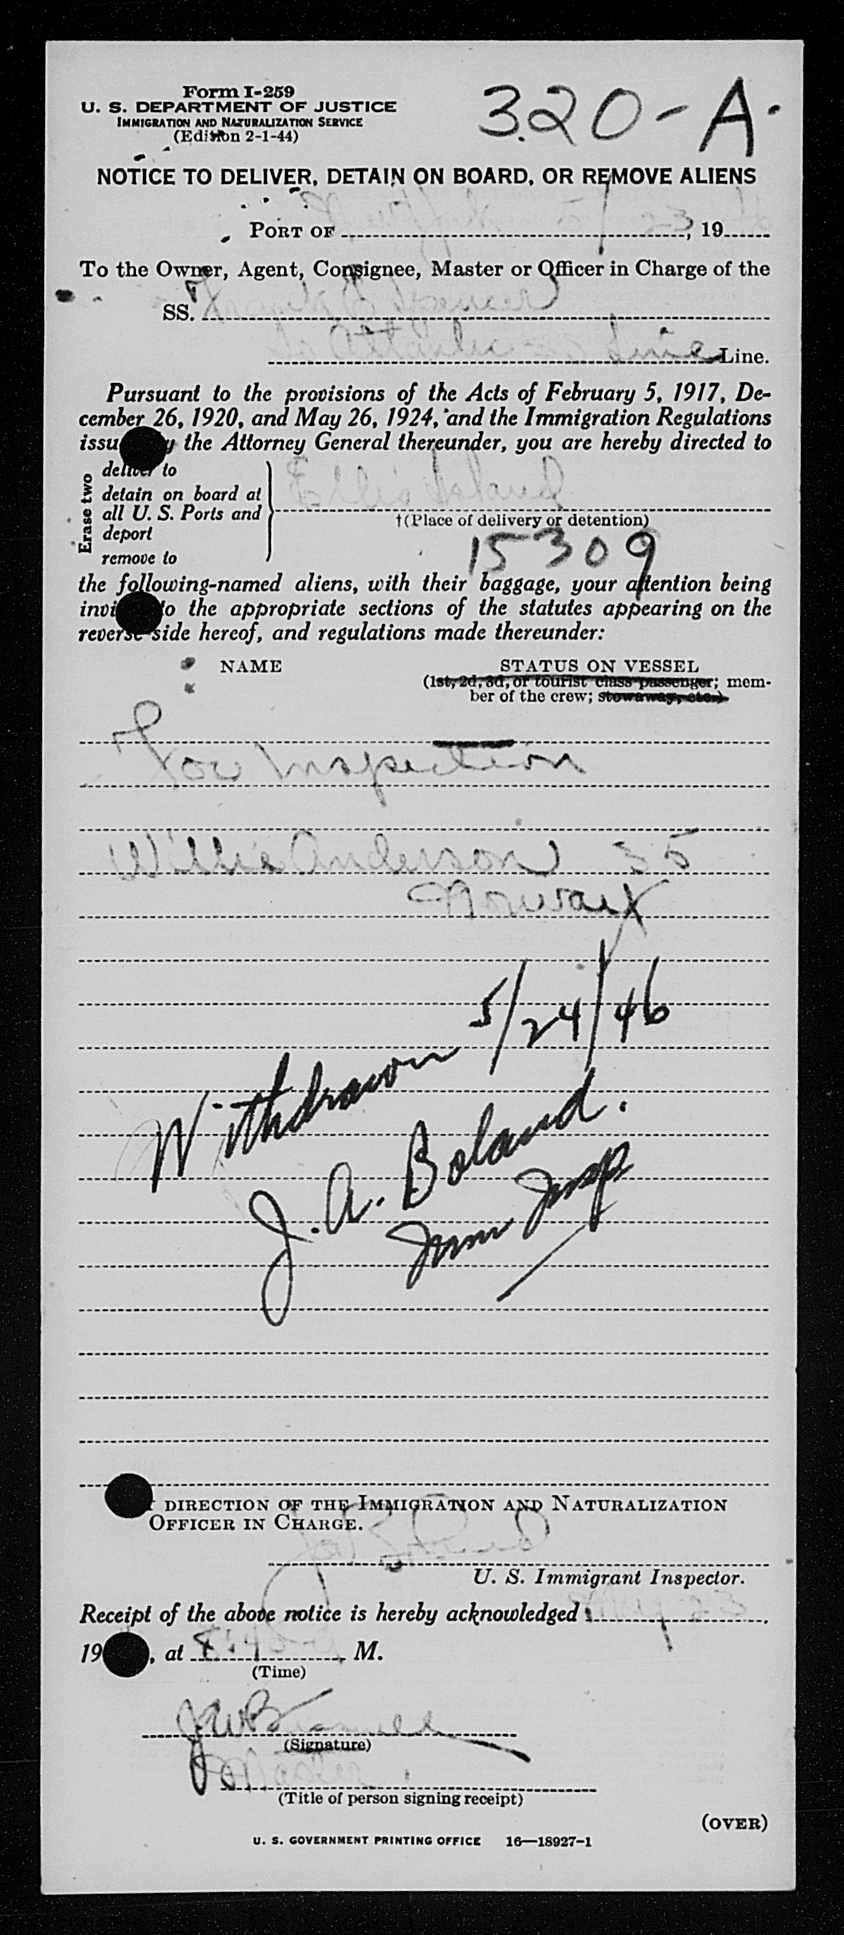 Form I-259
U. S. DEPARTMENT OF JUSTICE
IMMIGRATION AND NATURALIZATION SERVICE
(Edition 2-1-44)
320-A.
NOTICE TO DELIVER, DETAIN ON BOARD, OR REMOVE ALIENS
PORT OF , 19
To the Owner, Agent, Consignee, Master or Officer in Charge of the
SS. Spencer
So Atlantic SS Line Line.
Pursuant to the provisions of the Acts of February 5, 1917, De-
cember 26, 1920, and May 26, 1924, and the Immigration Regulations
issu y the Attorney General thereunder, you are hereby directed to
Erase two
deliver to
detain on board at
all U. S. Ports and
deport
remove to
Ellis Island
†(Place of delivery or detention)
15309
the following-named aliens, with their baggage, your attention being
invi to the appropriate sections of the statutes appearing on the
reverse side hereof, and regulations made thereunder:
NAME STATUS ON VESSEL
(1st, 2d, 3d, or tourist class passenger; mem-
ber of the crew; stowaway, etc.)
For Inspection
Willie Anderson 35
Norway
Withdrawn 5/24/46
J. A. Boland.
Imm Insp
DIRECTION OF THE IMMIGRATION AND NATURALIZATION
OFFICER IN CHARGE.
U. S. Immigrant Inspector.
Receipt of the above notice is hereby acknowledged
19 , at M.
(Time)
J.W.B
(Signature)
Master
(Title of person signing receipt)
(OVER)
U. S. GOVERNMENT PRINTING OFFICE 16—18927-1